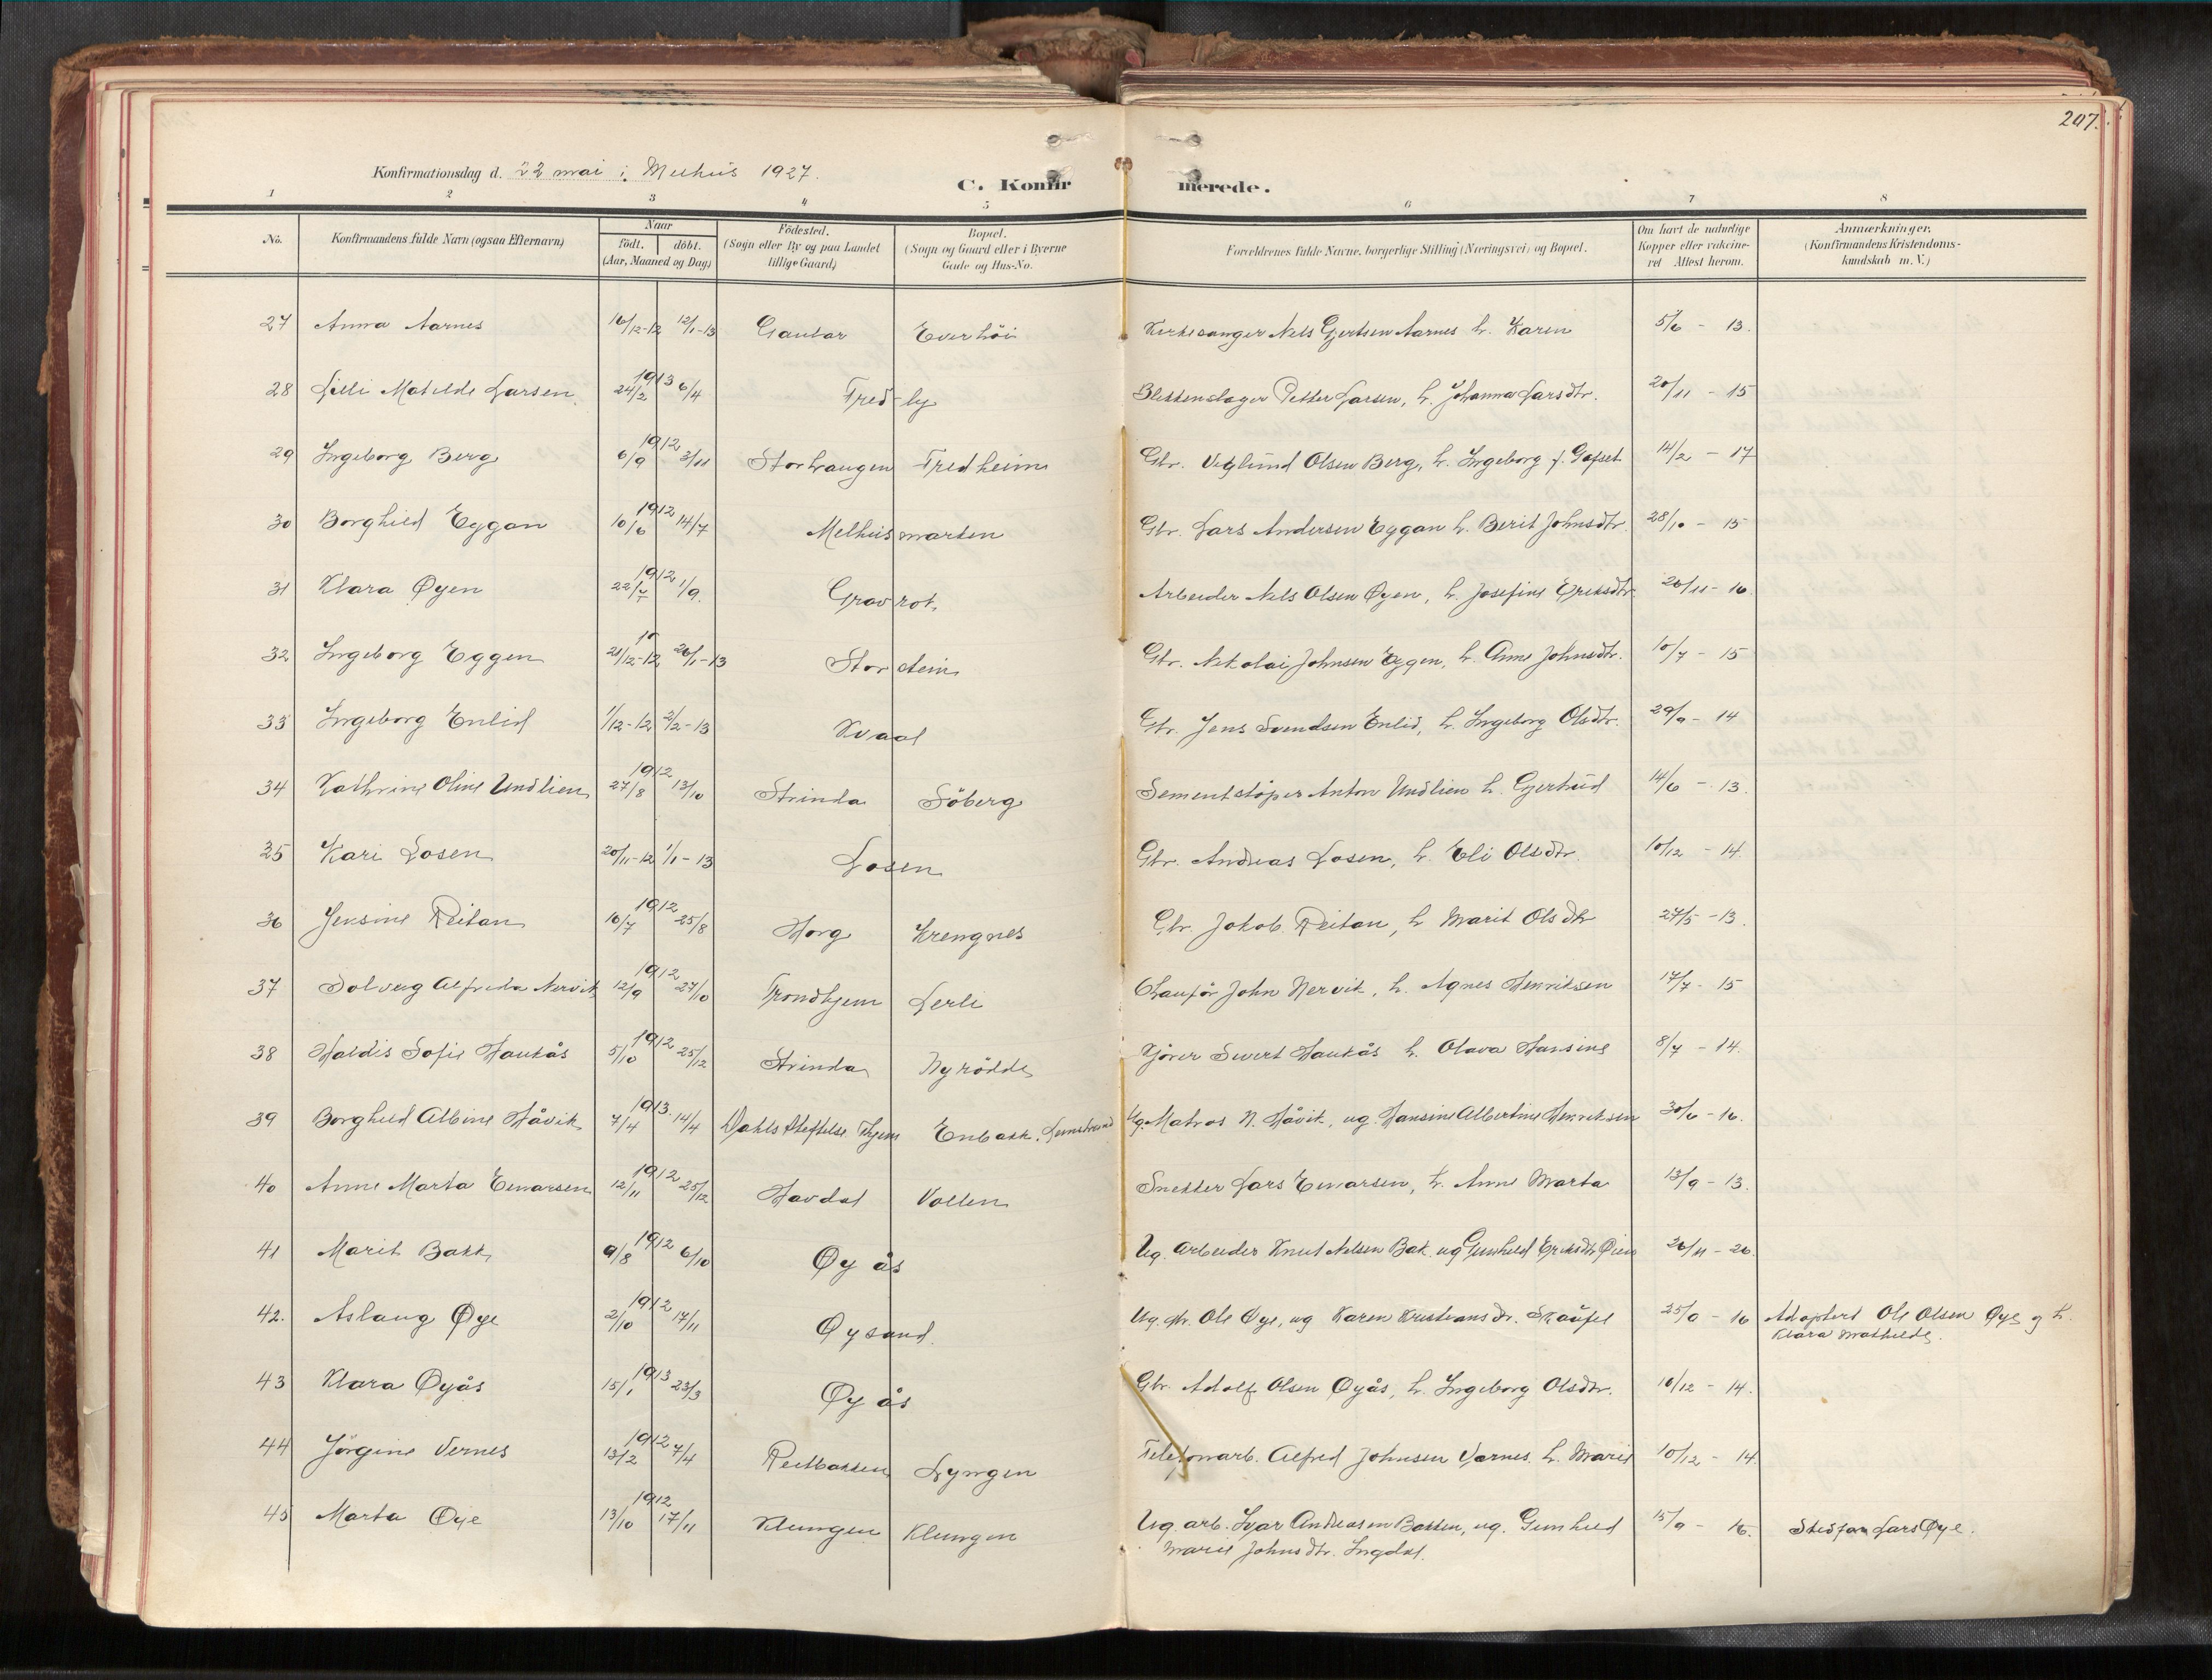 207.
Konfirmationsdag d. 22 mai i Melhus 1927.
C. Konfirmerede.
1 2 3 4 5 6 7 8
No. Konfirmandens fulde Navn (ogsaa Efternavn) Naar födt. döbt. (Aar, Maaned og Dag) Födested. (Sogn eller By og paa Landet tillige Gaard) Bopæl. (Sogn og Gaard eller i Byerne Gade og Hus-No. Forældrenes fulde Navne, borgerlige Stilling (Næringsvei) og Bopæl. Om havt de naturlige Kopper eller vakcineret Attest herom. Anmærkninger. (Konfirmandens Kristendomskundskab m. V.)
27 Anna Aarnes 16/12-12 12/1-13 Gaular Everhöi Kirkesanger Nels Gjertsen Aarnes h. Karen 5/6 - 13.
28 Lilli Matilde Larsen 1913 24/2 6/4 Fredly Blikkenslager Petter Larsen, h. Johanna Larsdtr. 20/11 - 15
29 Ingeborg Berg 1912 6/9 3/11 Storhaugen Fredheim Gbr. Veglund Olsen Berg, h. Ingeborg f. Gafset 14/2 - 17
30 Borghild Eggan 1912 10/6 14/7 Melhusmarken Gbr. Lars Andersen Eggan h. Berit Johnsdtr. 28/10 - 15
31 Klara Øyen 1912 22/7 1/9. Gravrok, Arbeider Nels Olsen Øyen, h. Josefine Eriksdtr 20/11 - 16.
32 Ingeborg Eggen 21/12-12 26/1-13 Storstein Gbr. Nikolai Johnsen Eggen, h. Anne Johnsdtr. 10/7 - 15
33 Ingeborg Enlid 1/12-12 2/2-13 Kvaal Gbr. Jens Svendsen Enlid, h. Ingeborg Olsdtr. 29/9 - 14
34 Kathrine Oline Undlien 1912 27/8 13/10 Strinda Söberg Sementstöper Anton Undlien h. Gjertrud 14/6 - 13.
35 Kari Losen 20/11-12 1/1-13 Losen Gbr. Andreas Losen, h. Eli Olsdtr. 10/12 - 14.
36 Jensine Reitan 1912 16/7 25/8 Horg Krengnes Gbr. Jakob Reitan, h Marit Olsdtr 27/5 - 13.
37 Solveig Alfreda Nervik 1912 12/9 27/10 Trondhjem Lerli Chauför John Nervik, h. Agnes Henriksen 17/7 - 15
38 Haldis Sofie Haukås 1912 5/10 25/12 Strinda Nyrödde Kjörer Sivert Haukås h. Olava Hansine 8/7 - 14.
39 Borghild Albine Håvik 1913. 7/4 14/4 Dahls Stiftelse Thjem Enbakk, Leinstrand Ug. Matros N. Håvik, ug. Hansine Albertine Henriksen 30/6 - 16.
40 Anne Marta Einarsen 1912 12/11 25/12 Havdal Vollen Snekker Lars Einarsen, h. Anne Marta 13/9 - 13.
41 Marit Bakk 1912 9/8 6/10 Øyås Ug. Arbeider Knut Nelsen Bak, ug Gunhild Eriksdtr Øien 26/11 - 26.
42. Aslaug Øye 1912 2/10 17/11 Øysand. Ug. gbr. Ole Øye, ug Karen Kristiansdr. Skaufel 16 Adoptert Ole Olsen Øye og h.
Klara Mathilde.
43 Klara Øyås 1913 15/1 23/3 Øyås Gbr. Adolf Olsen Øyås, h. Ingeborg Olsdtr. 16/12 - 14.
44 Jörgine Vernes 1912 13/2 7/4 Reitbakken Lyngen Telefonarb. Alfred Johnsen Värnes. h. Marie 10/12 - 14.
45 Marta Øye 1912 13/10 17/11 Klungen Klungen Ug. arb. Ivar Andreasen Bakken, ug. Gunhild 15/9 - 16. Stedfar Lars Øye.
Marie Johnsdtr. Ingdal.